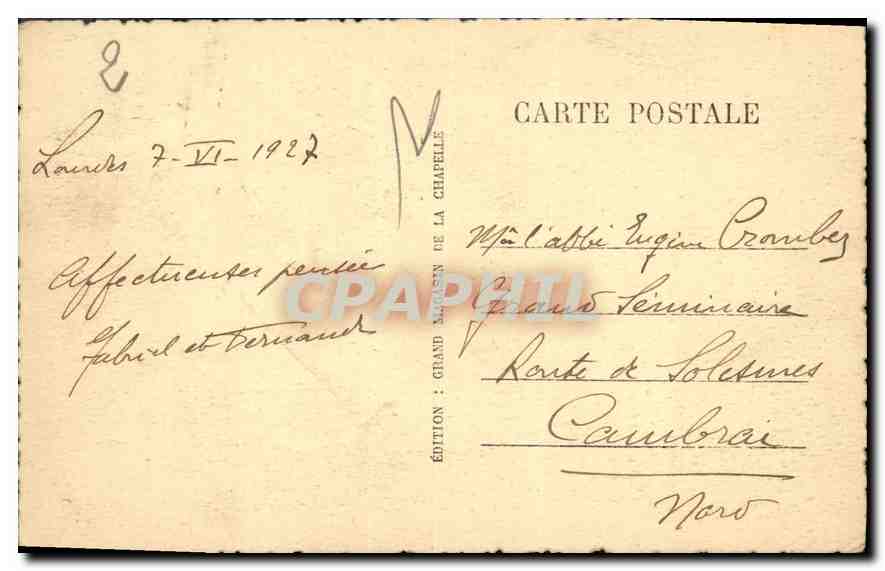 2
CARTE POSTALE
Lourdes 7-VI-1927
Affectueuses pensées
Gabriel et Fernand
ÉDITION : GRAND MAGASIN DE LA CHAPELLE
l'abbé Eugène Crombez
Grand Séminaire
Route de Solesmes
Cambrai
Nord
CPAPHIL